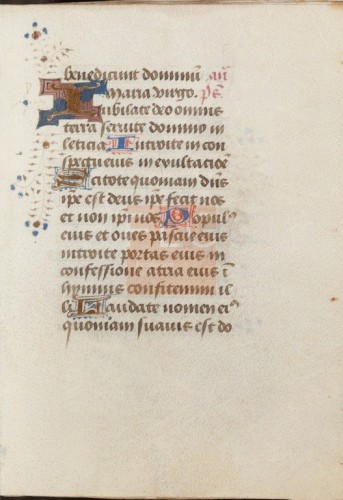 benedicunt dominū an̄
Maria virgo. ps̄
Iubilate deo omnis
terra seruite domino in
leticia Introite in con
spectu eius in exultacioē
Scitote quoniam dn̄s
ip̄e est deus ip̄e fecit nos
et non ip̄i nos Populus
eius et oues pascue eius
introite portas eius in
confessione atria eius ī
hymnis confitemini il
li Laudate nomen eiꝰ
quoniam suauis est do